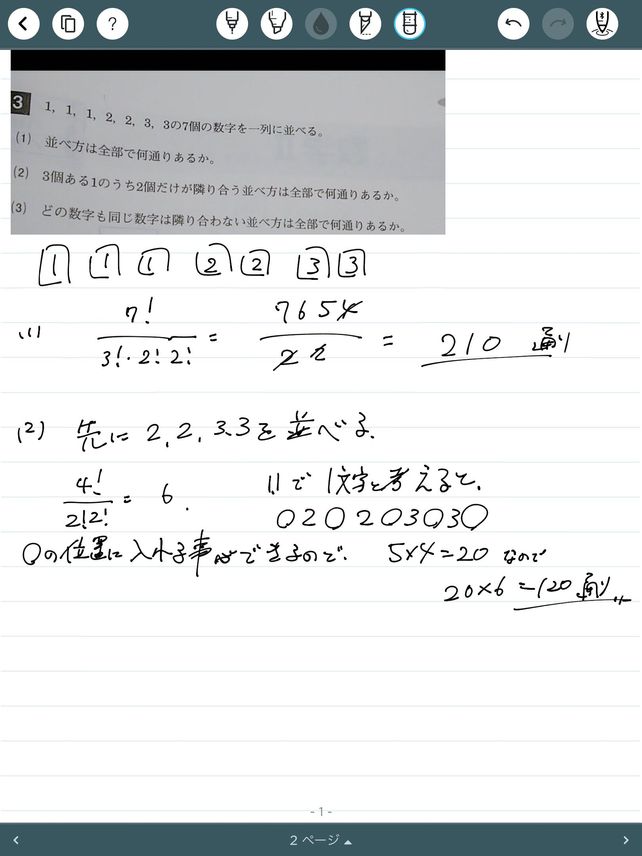 ?
3 1, 1, 1, 2, 2, 3, 3の7個の数字を一列に並べる。
(1) 並べ方は全部で何通りあるか。
(2) 3個ある1のうち2個だけが隣り合う並べ方は全部で何通りあるか。
(3) どの数字も同じ数字は隣り合わない並べ方は全部で何通りあるか。
1 1 1 2 2 3 3
(1) 7! / 3!・2!2! = 7 6 5 4 / 2 2 = 210 通り
(2) 先に 2, 2, 3, 3を並べる.
4! / 2!2! = 6. 1,1で1文字と考えると、
○2○2○3○3○
○の位置に入れる事ができるので、 5×4=20 なので
20×6 = 120通り
- 1 -
2 ページ